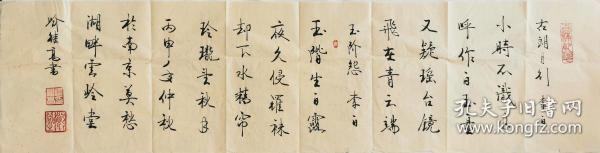 古朗月行 李白
小時不識月
呼作白玉盤
又疑瑤台鏡
飛在青云端
玉階怨 李白
玉階生白露
夜久侵羅袜
却下水精帘
玲瓏望秋月
丙申年仲秋
於南京莫愁
湖畔雲岭堂
書
孔夫子旧书网